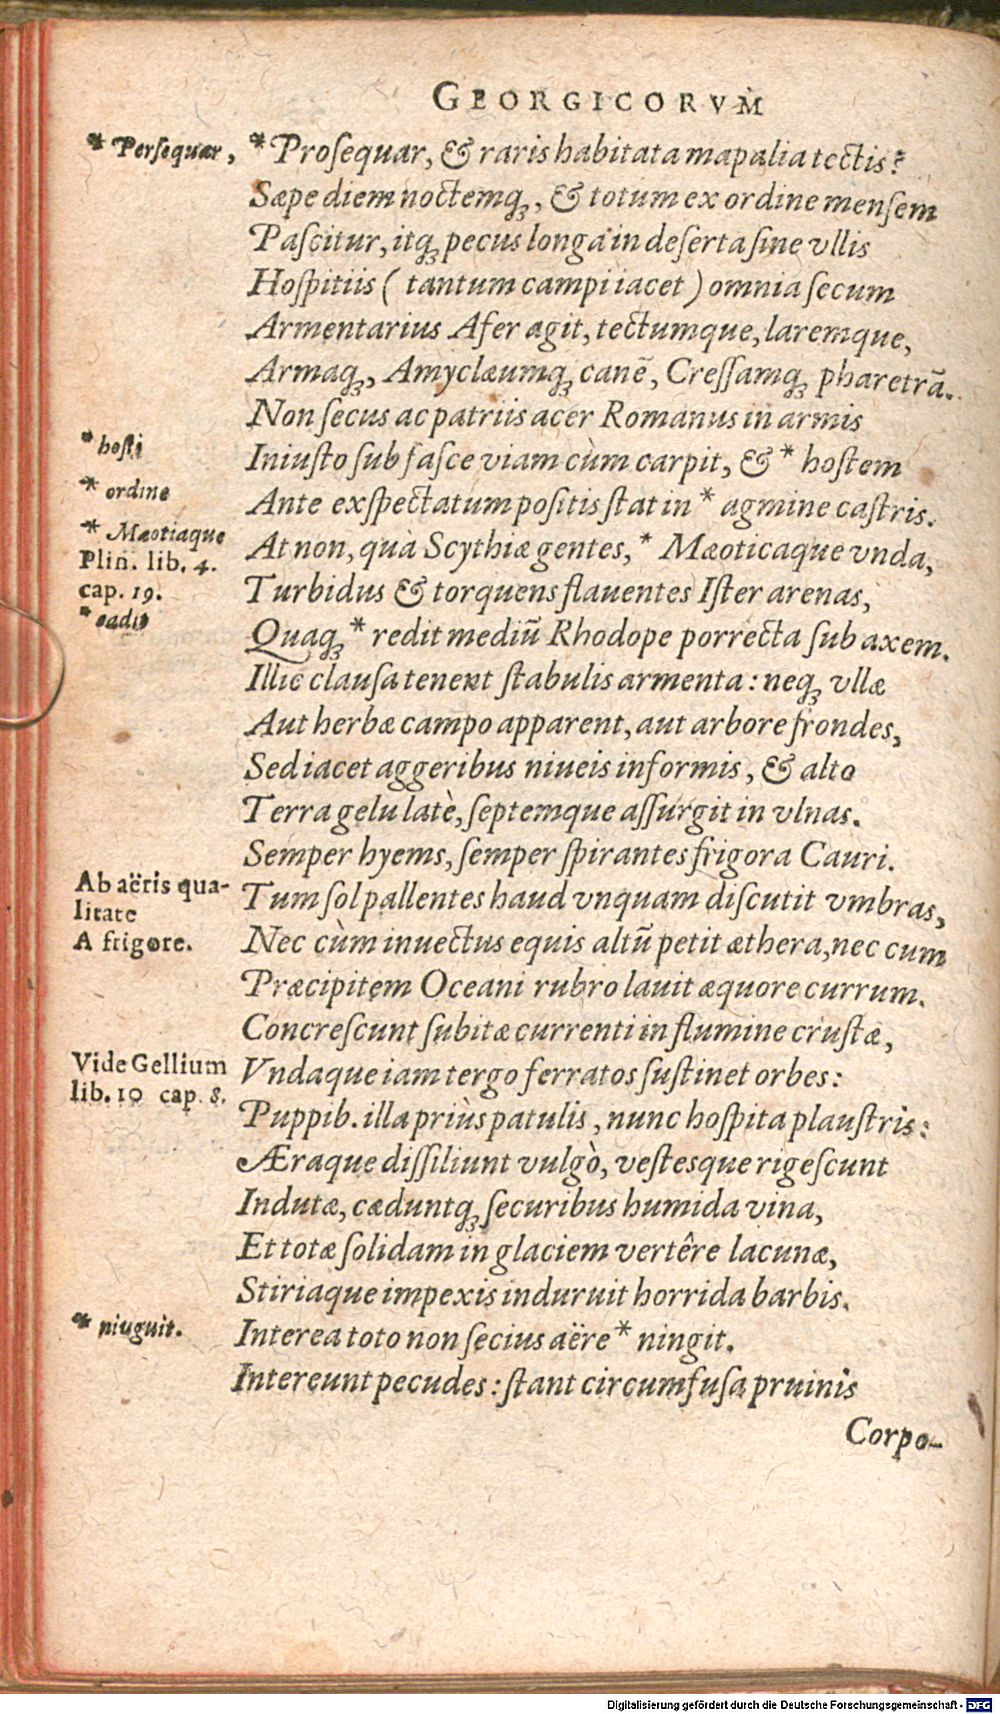 GEORGICORVM
* Persequar, * Proſequar, & raris habitata mapalia tectis?
Sæpe diem noctemq́ꝫ, & totum ex ordine menſem
Paſcitur, itq́ꝫ pecus longa in deſerta ſine vllis
Hoſpitiis ( tantum campi iacet ) omnia ſecum
Armentarius Afer agit, tectumque, laremque,
Armaq́ꝫ, Amyclæumq́ꝫ canē, Creſſamq́ꝫ pharetrā.
Non ſecus ac patriis acer Romanus in armis
* hoſti
Iniuſto ſub faſce viam cùm carpit, & * hoſtem
* ordine
Ante exſpectatum poſitis ſtat in * agmine caſtris.
* Mæotiaque
At non, quà Scythiæ gentes, * Mæoticaque vnda,
Plin. lib. 4.
cap. 19.
Turbidus & torquens flauentes Iſter arenas,
* eadit
Quaq́ꝫ * redit mediū Rhodope porrecta ſub axem.
Illic clauſa tenent ſtabulis armenta : neq́ꝫ vllæ
Aut herbæ campo apparent, aut arbore frondes,
Sed iacet aggeribus niueis informis, & alto
Terra gelu latè, ſeptemque aſſurgit in vlnas.
Semper hyems, ſemper ſpirantes frigora Cauri.
Ab aëris qua-
litate
Tum ſol pallentes haud vnquam diſcutit vmbras,
A frigore.
Nec cùm inuectus equis altū petit æthera, nec cum
Præcipitem Oceani rubro lauit æquore currum.
Concreſcunt ſubitæ currenti in flumine cruſtæ,
Vide Gellium
lib. 10 cap. 8.
Vndaque iam tergo ferratos ſuſtinet orbes :
Puppib. illa priùs patulis, nunc hoſpita plauſtris :
Æraque diſſiliunt vulgò, veſtesque rigeſcunt
Indutæ, cæduntq́ꝫ ſecuribus humida vina,
Et totæ ſolidam in glaciem vertêre lacunæ,
Stiriaque impexis induruit horrida barbis.
* niuguit.
Interea toto non ſecius aëre * ningit.
Intereunt pecudes : ſtant circumfuſa pruinis
Corpo-
Digitalisierung gefördert durch die Deutsche Forschungsgemeinschaft - DFG